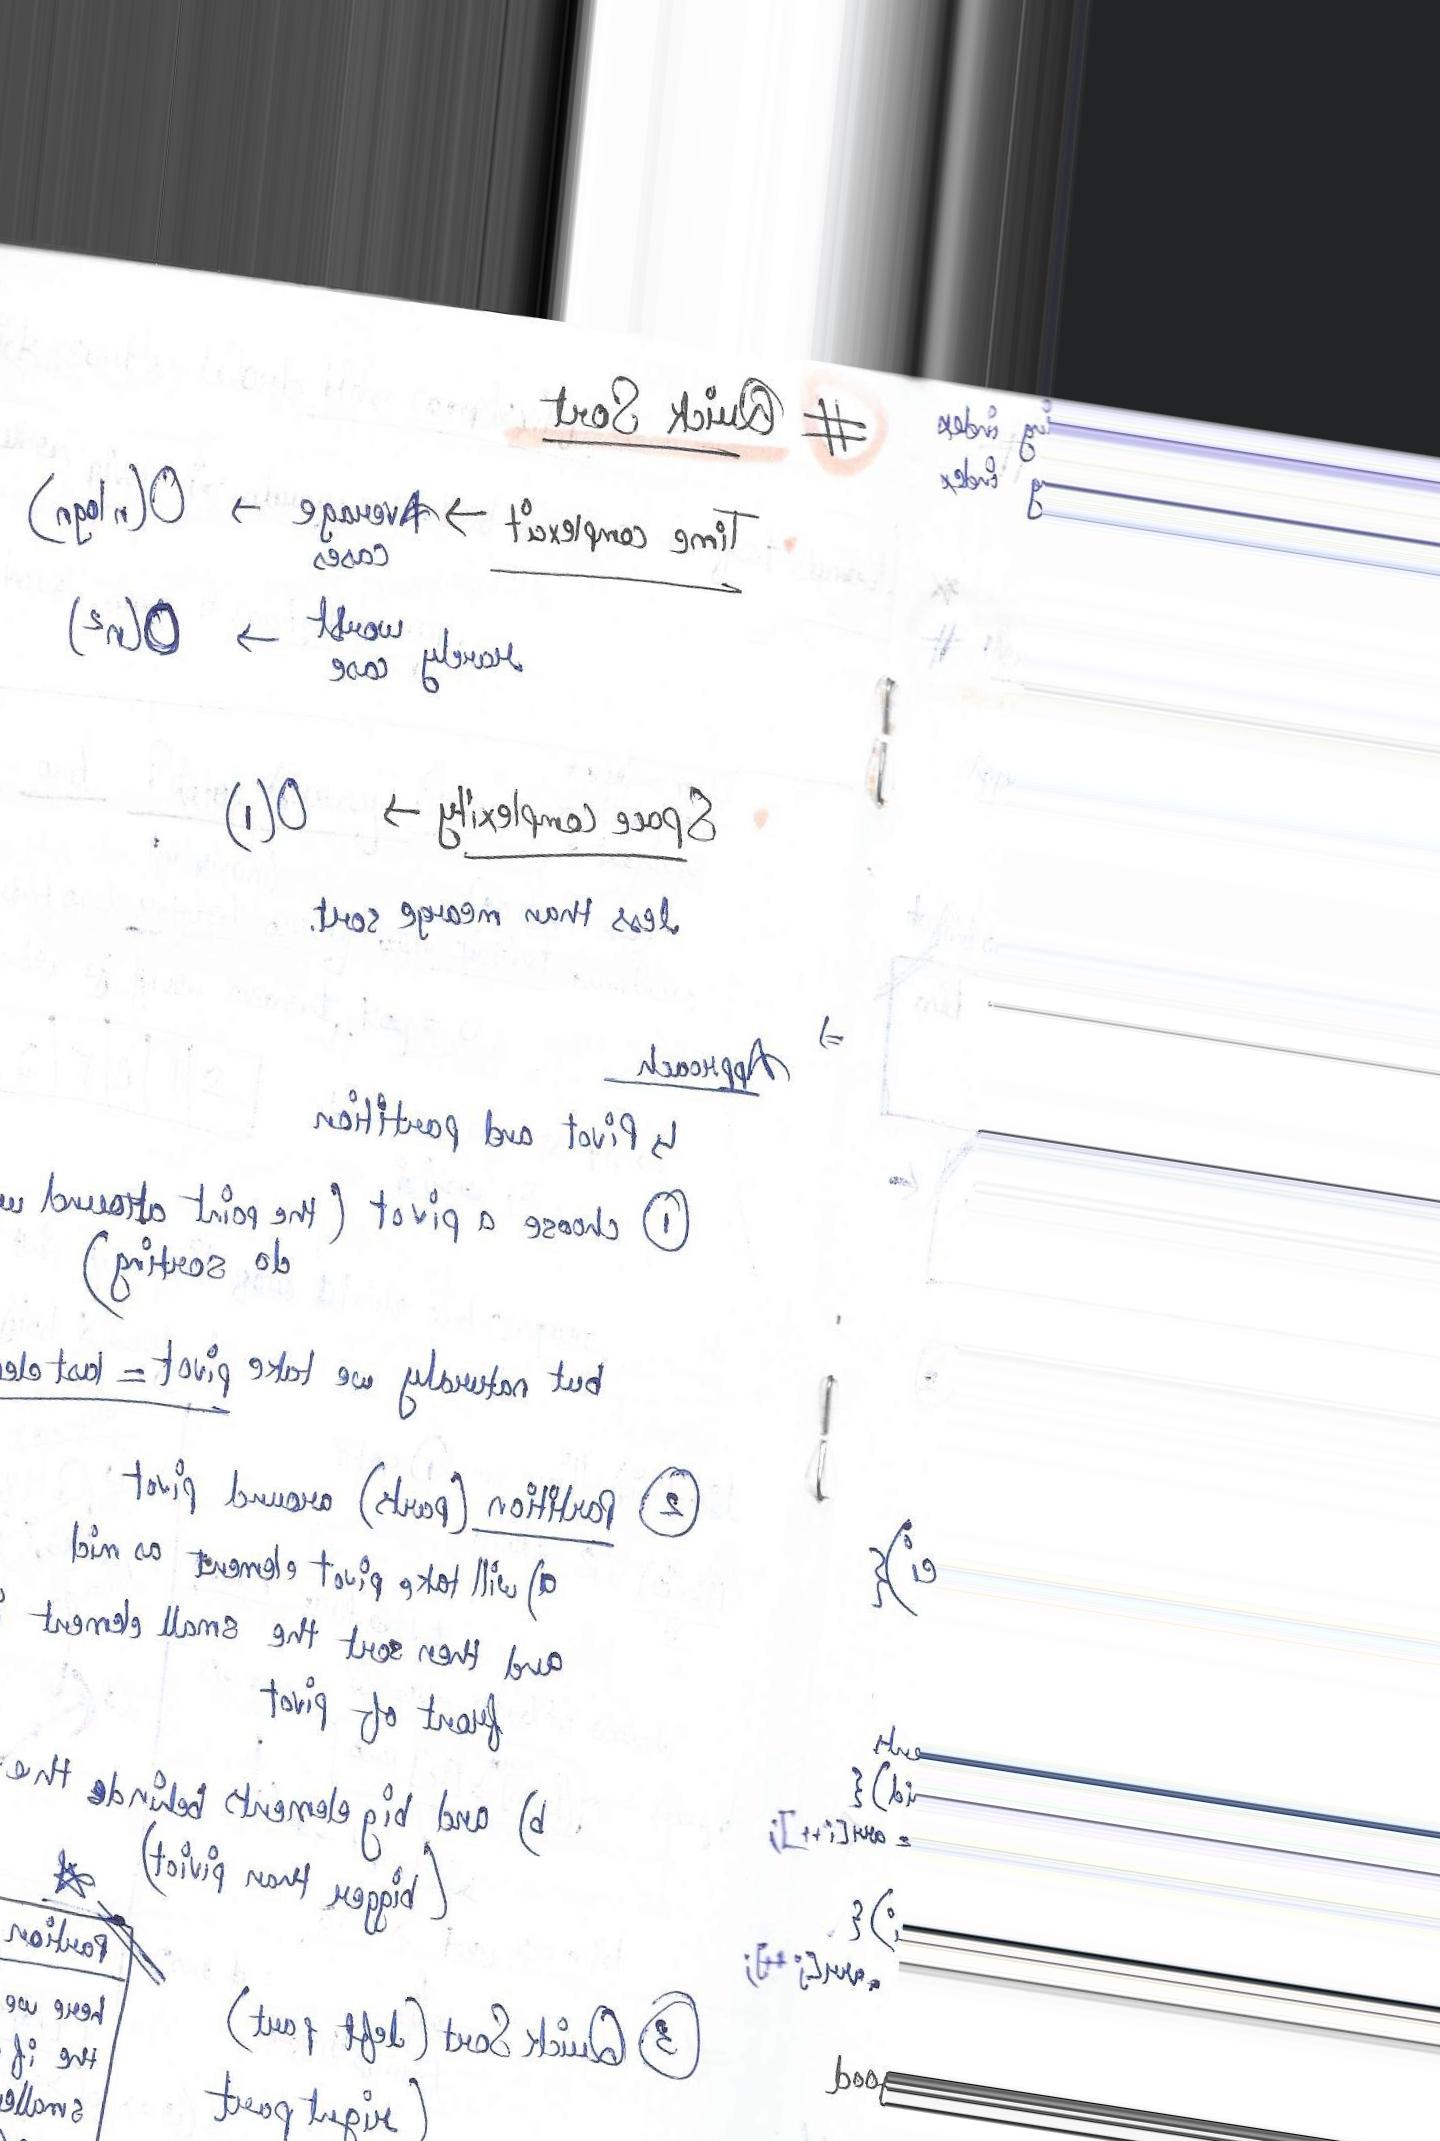 # Quick Sort
Time complexcit → Average → O(nlogn)
cases
rarely worst → O(n²)
case
Space complexity → O(1)
less than mearge sort.
⇒ Approach
↳ Pivot and partition
① choose a pivot (the point around w
do sorting)
but naturaly we take pivot = last ele
② Partition (parts) around pivot
a) will take pivot element as mid
and then sort the small element
front of pivot
b) and big elements behinde the
(bigger than piviot)
③ Quick Sort (left part)
(right part
Partion
here we
the if
smalle
ing index
g index
ei) {
ents
id) {
= arr[i++];
j) {
= arr[j++];